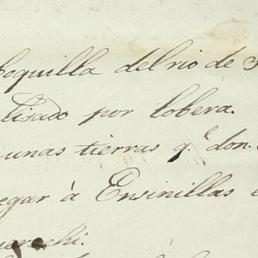 boquilla del rio de
lisado por lobera.
unas tierras q.e don
egar à Ensinillas